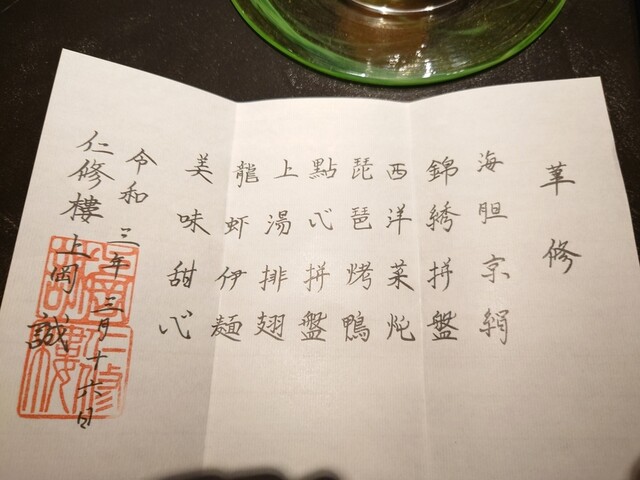 革修
海胆京絹
錦綉拼盤
西洋菜炖
琵琶烤鴨
點心拼盤
上湯排翅
龍虾伊麵
美味甜心
令和三年三月十六日
仁修樓上岡誠